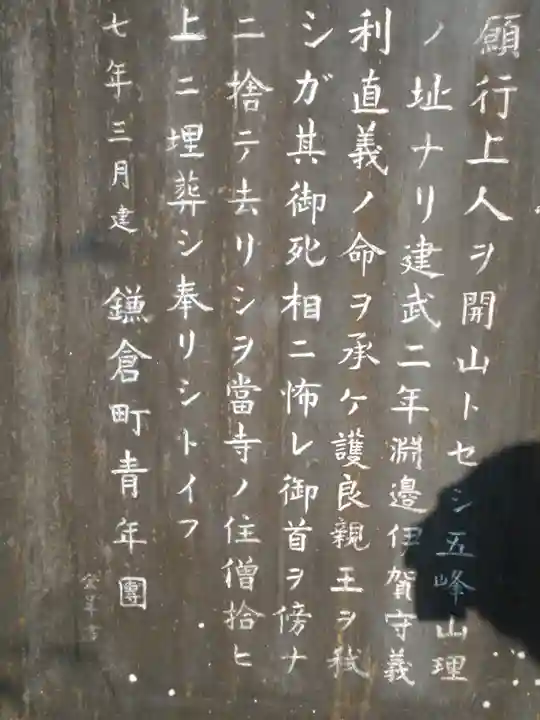 願行上人ヲ開山トセシ五峰山理
ノ址ナリ建武二年淵邊伊賀守義
利直義ノ命ヲ承ケ護良親王ヲ弑
シガ其御死相ニ怖レ御首ヲ傍ナ
ニ捨テ去リシヲ當寺ノ住僧拾ヒ
上ニ埋葬シ奉リシトイフ
七年三月建 鎌倉町青年團